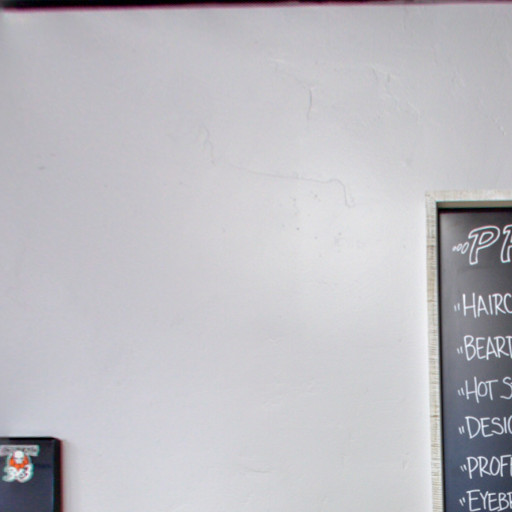 PR
"HAIRC
"BEARD
"HOT S
"DESIG
"PROFE
"EYEBR